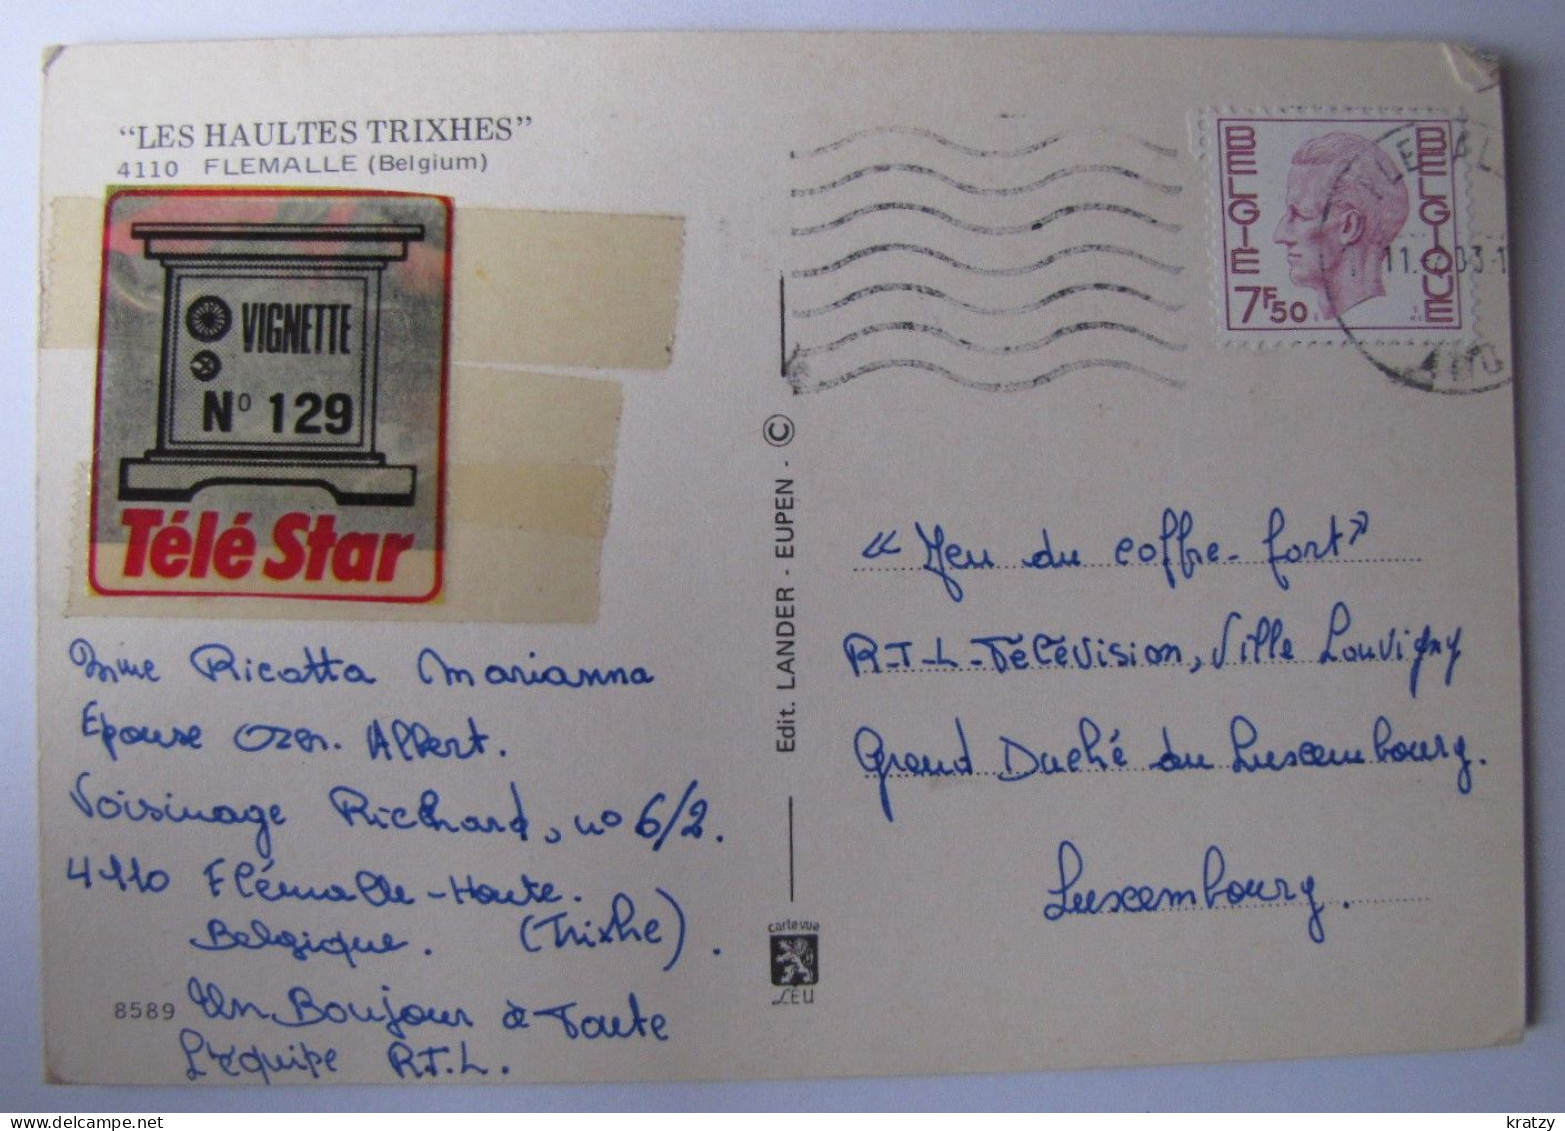 “LES HAULTES TRIXHES”
4110 FLEMALLE (Belgium)
VIGNETTE
No 129
Télé Star
Mme Ricotta Marianna
Epouse Ozen. Albert.
Voisinage Richard, no 6/2.
4110 Flémalle-Haute.
Belgique. (Trixhe).
8589 Un Boujour à Toute
L'équipe R.T.L.
Edit. LANDER - EUPEN - ©
carte vue
LEU
BELGIE BELGIQUE
7F50
« Jeu du coffre-fort »
R-T-L-Télévision, Ville Louvigny
Grand Duché du Luxembourg.
Luxembourg.
kratzy